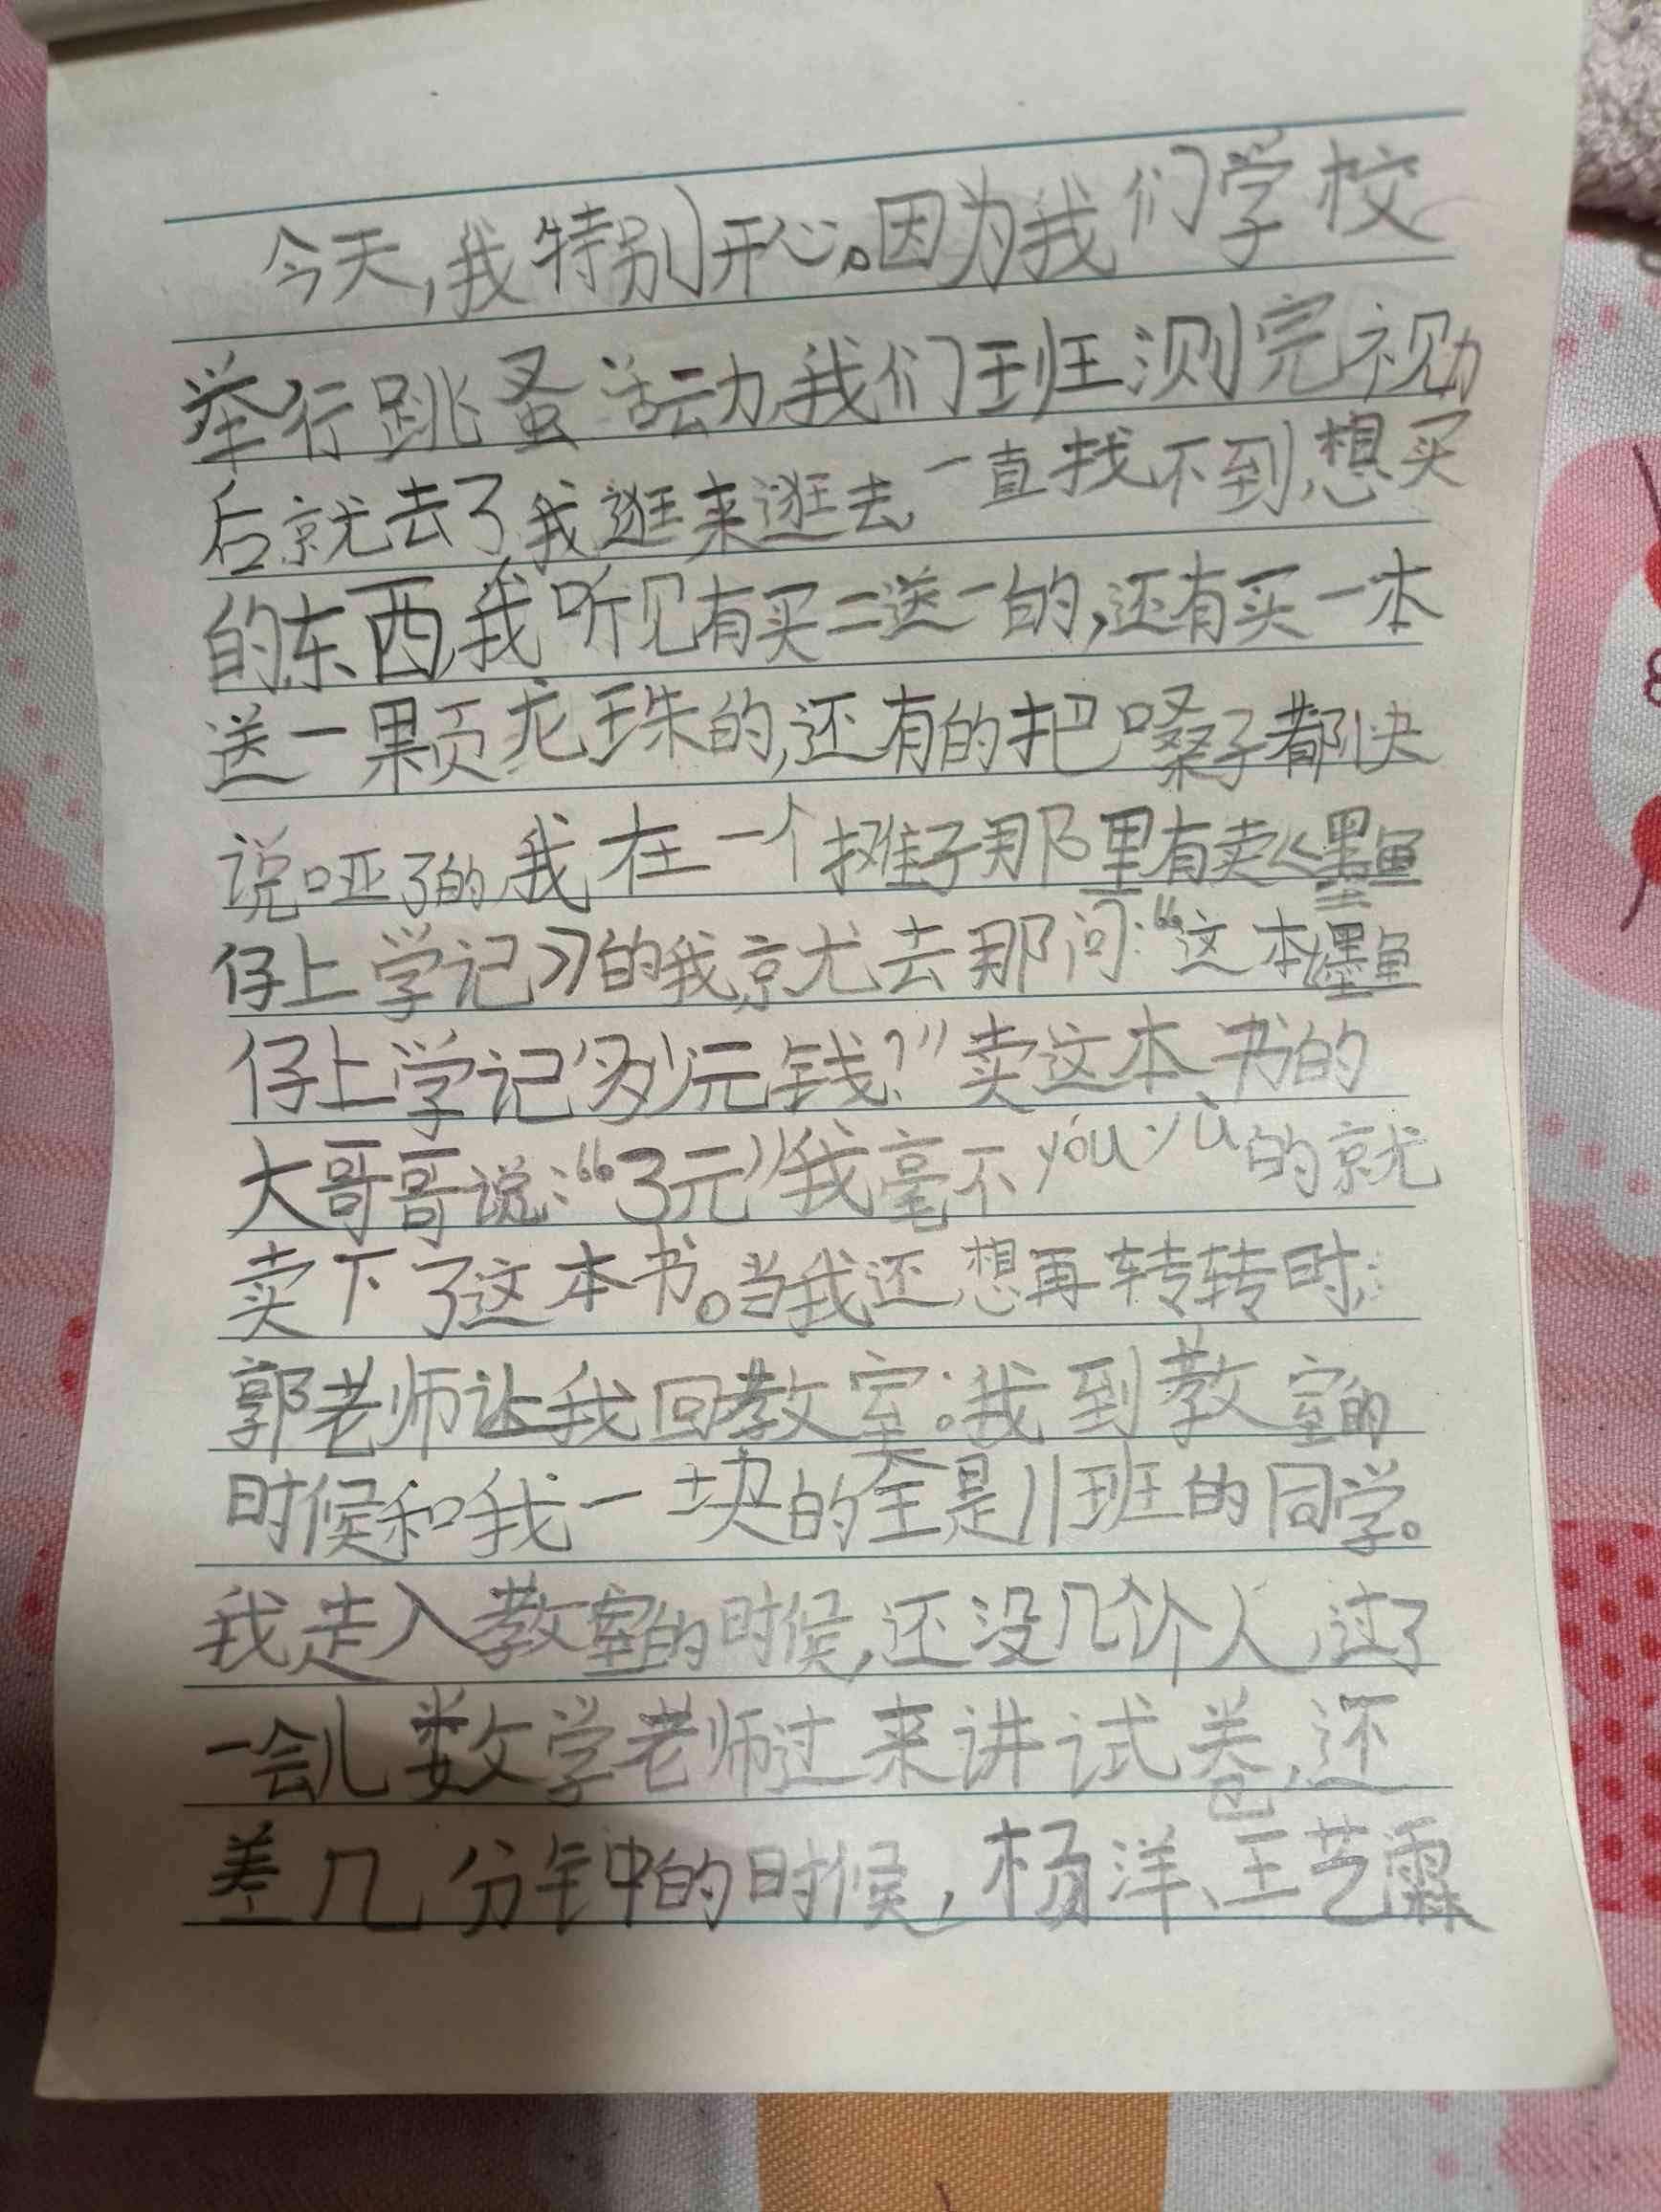 今天,我特别开心。因为我们学校
举行跳蚤活动,我们班测完视力
后就去了,我逛来逛去,一直找不到,想买
的东西,我听见有买二送一的,还有买一本
送一颗龙珠的,还有的把嗓子都快
说哑了的,我在一个摊子那里有卖《墨鱼
仔上学记》的我就去那问:“这本墨鱼
仔上学记多少元钱?”卖这本书的
大哥哥说:“3元”我毫不yóu yù的就
卖下了这本书。当我还想再转转时,
郭老师让我回教室。我到教室的
时候和我一块的全是11班的同学。
我走入教室的时候,还没几个人,过了
一会儿数学老师过来讲试卷,还
差几分钟的时候,杨洋、王艺霖